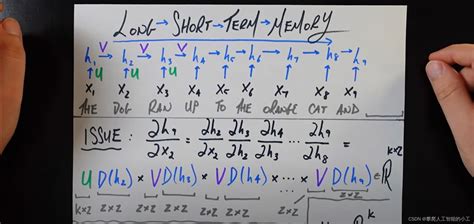 LONG → SHORT → TERM → MEMORY
V V V
h₁ → h₂ → h₃ → h₄ → h₅ → h₆ → h₇ → h₈ → h₉
↑U ↑U ↑U ↑ ↑ ↑ ↑ ↑ ↑
X₁ X₂ X₃ X₄ X₅ X₆ X₇ X₈ X₉
THE DOG RAN UP TO THE ORANGE CAT AND
ISSUE: ∂h₉/∂x₂ = ∂h₂/∂x₂ ∂h₃/∂h₂ ∂h₄/∂h₃ ... ∂h₉/∂h₈ =
U D(h₂) × V D(h₃) × V D(h₄) × ... × V D(h₉) ∈ ℝ^(k×z)
k×z z×z z×z z×z z×z z×z
CSDN @攀爬人工智能的小工